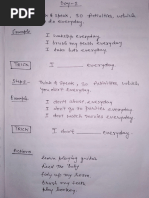 Step-1
Think & speak, 30 activities, which
you do everyday.
Example
I wakeup everyday.
I brush my teeth everyday.
I take bath everyday.
TRICK
I ______ everyday.
Step-2
Think & speak, 30 activities, which
you don't everyday.
Example
I don't shout everyday.
I don't go to foreign everyday.
I don't watch movie everyday.
TRICK
I don't ______ everyday.
Actions
Learn playing guitar
Read the story
Tidy up my room
Brush my teeth
Play hockey.